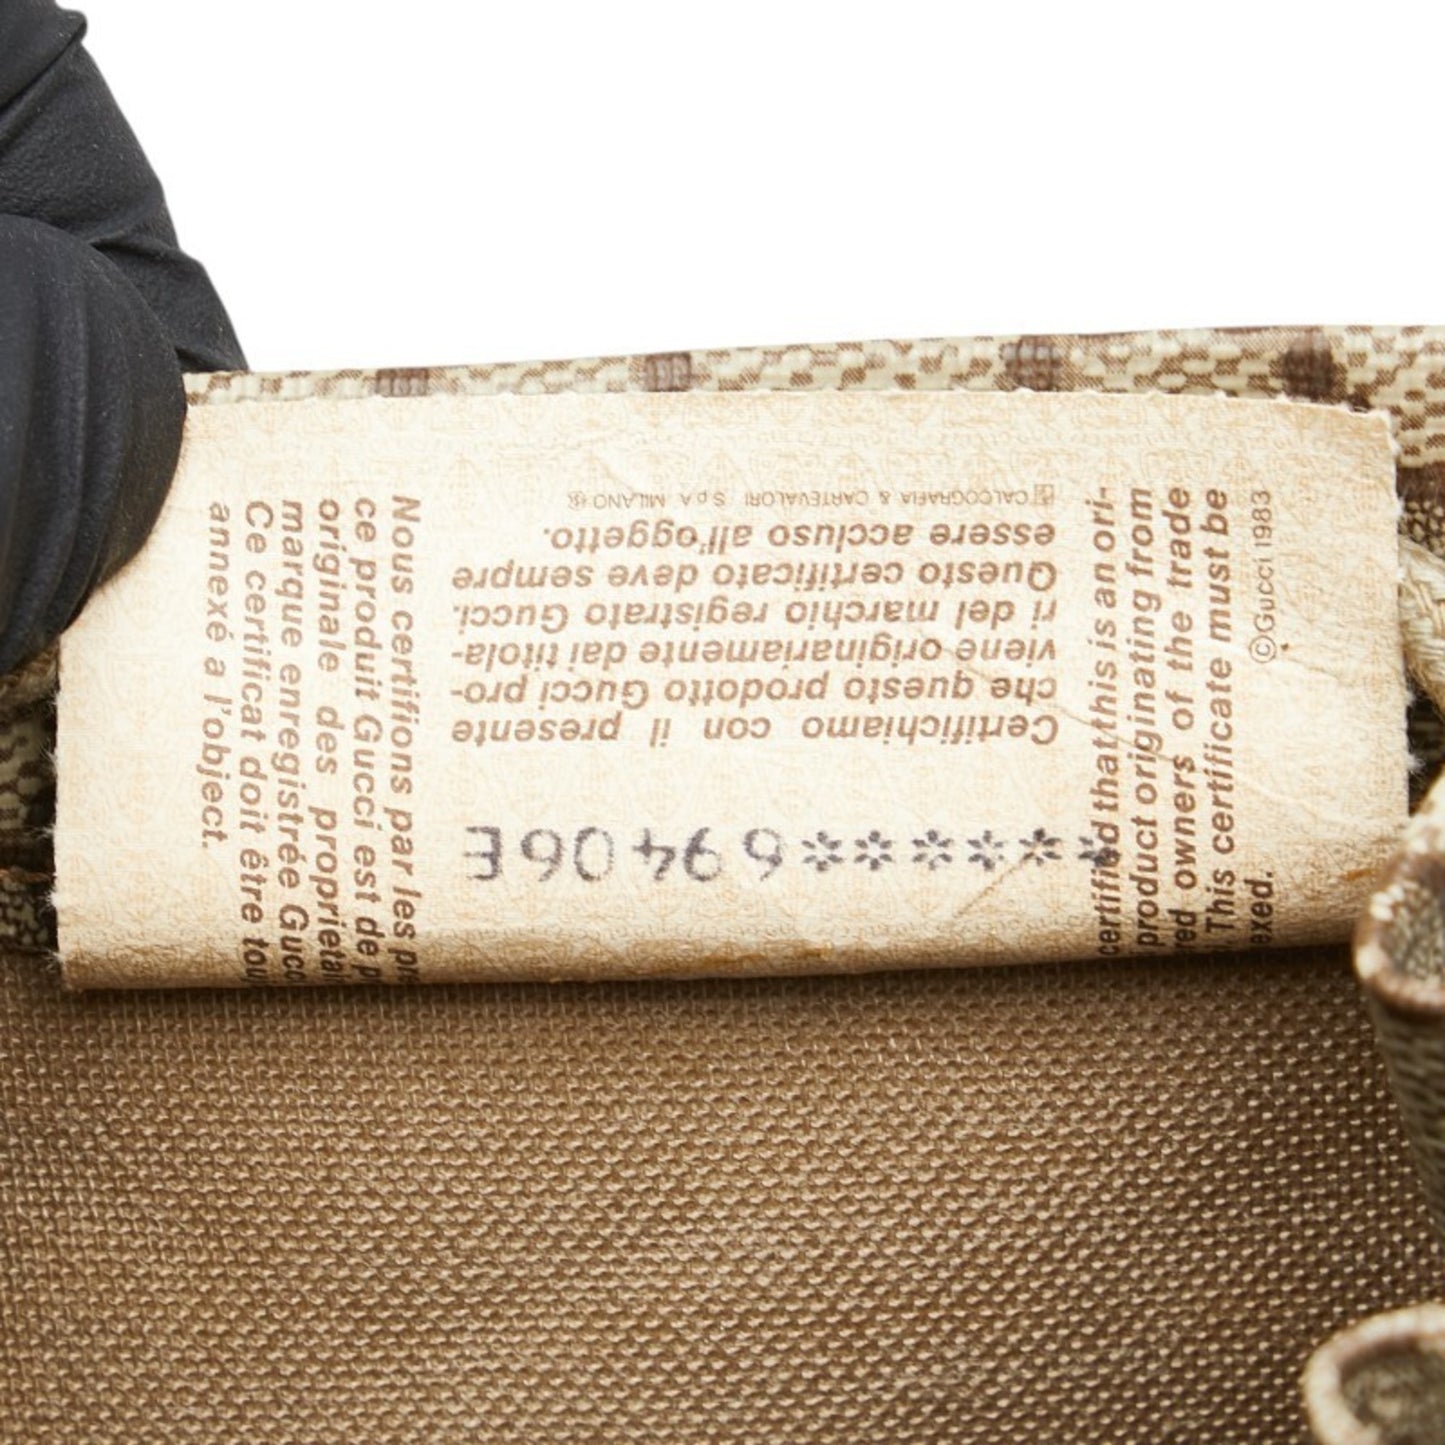 Nous certifions par les pr
ce produit Gucci est de p
originale des proprieta
marque enregistrée Gucc
Ce certificat doit être tou
annexé a l'object.
******69406E
Certifichiamo con il presente
che questo prodotto Gucci pro-
viene originariamente dai titola-
ri del marchio registrato Gucci.
Questo certificato deve sempre
essere accluso all'oggetto.
CALCOGRAFIA & CARTEVALORI S.p.A. MILANO
certified that this is an ori-
product originating from
red owners of the trade
This certificate must be
exed.
©Gucci 1983